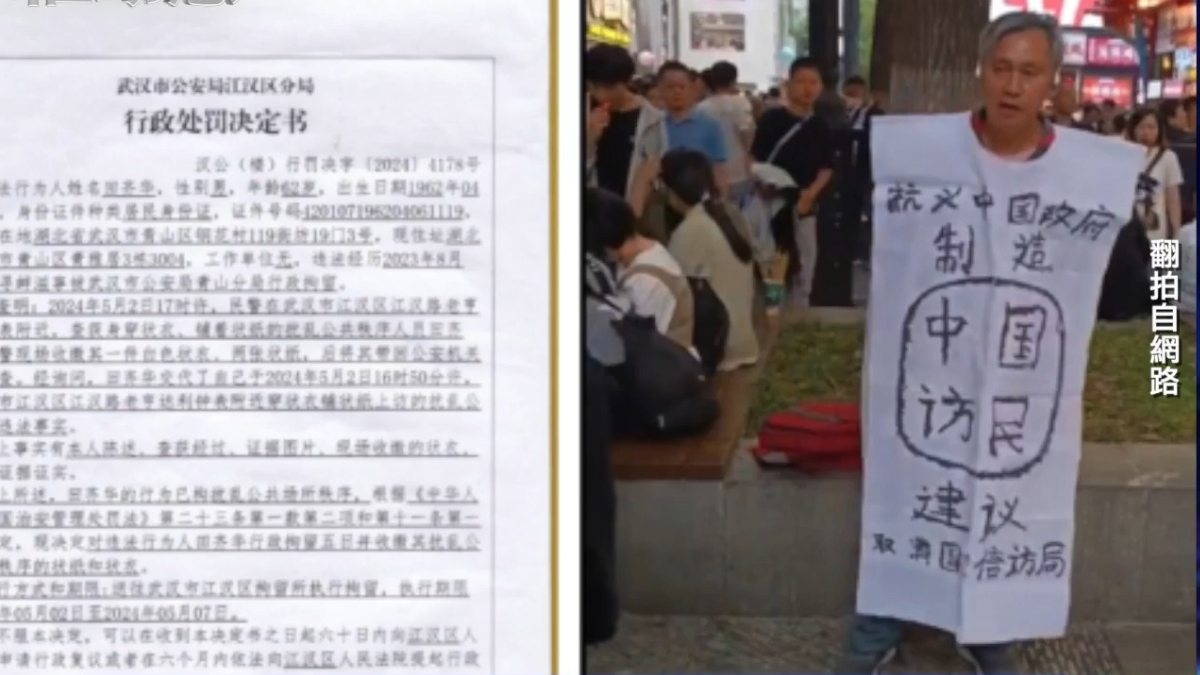 武汉市公安局江汉区分局
行政处罚决定书
汉公（楼）行罚决字〔2024〕4178号
法行为人姓名田齐华，性别男，年龄62岁，出生日期1962年04
，身份证件种类居民身份证，证件号码420107196204061119，
在地湖北省武汉市青山区钢花村119街坊19门3号，现住址湖北
市青山区青雅居3栋3004，工作单位无，违法经历2023年8月
寻衅滋事被武汉市公安局青山分局行政拘留。
查明：2024年5月2日17时许，民警在武汉市江汉区江汉路老亨
表附近，查获身穿状衣、铺着状纸的扰乱公共秩序人员田齐
警现场收缴其一件白色状衣、两张状纸，后将其带回公安机关
查。经询问，田齐华交代了自己于2024年5月2日16时50分许，
市江汉区江汉路老亨达利钟表附近穿状衣铺状纸上访的扰乱公
违法事实。
上事实有本人陈述、查获经过、证据图片、现场收缴的状衣、
证据证实。
上所述，田齐华的行为已构扰乱公共场所秩序，根据《中华人
国治安管理处罚法》第二十三条第一款第二项和第十一条第一
定，现决定对违法行为人田齐华行政拘留五日并收缴其扰乱公
秩序的状纸和状衣。
行方式和期限：送往武汉市江汉区拘留所执行拘留，执行期限
年05月02日至2024年05月07日。
不服本决定，可以在收到本决定书之日起六十日内向江汉区人
申请行政复议或者在六个月内依法向江汉区人民法院提起行政
抗议中国政府
制造
中国
访民
建议
取消国信访局
翻拍自網路